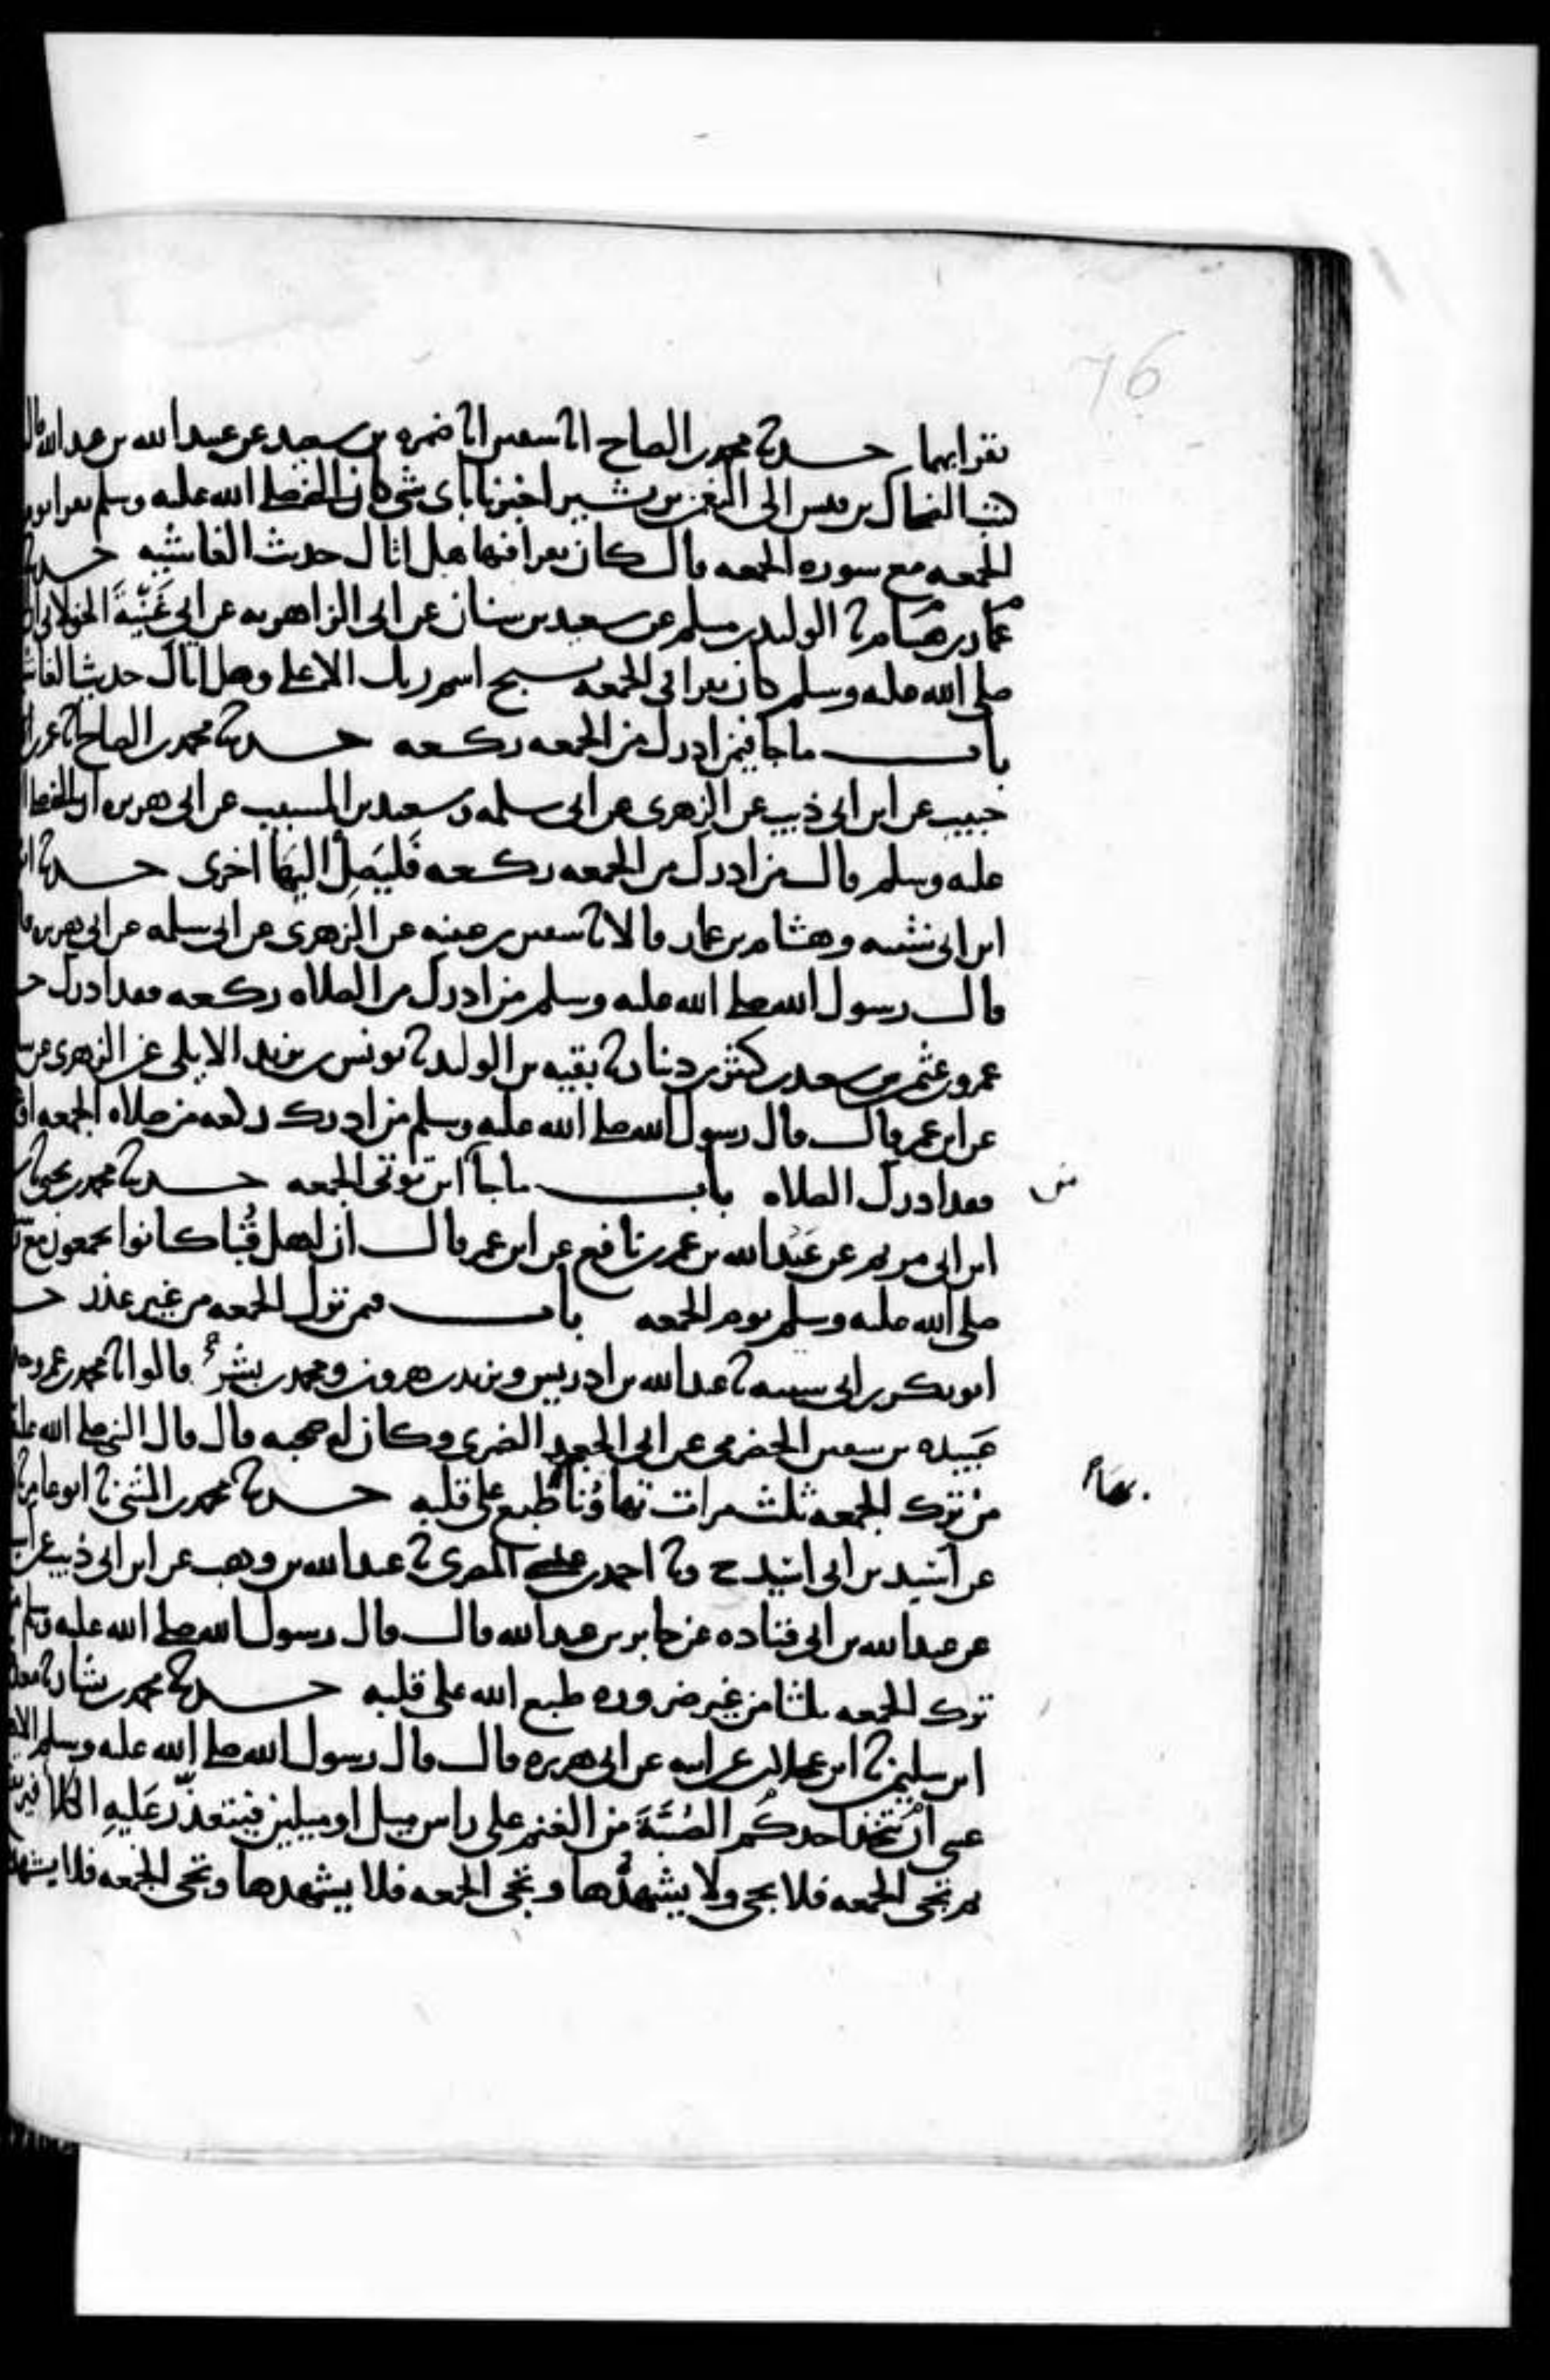 76
يقرا بهما حدثنا محمد بن الصباح انا سفين انا ضمره بن سعيد عن عبيد الله بن عبد الله قال
كتب الضحاك بن قيس الى النعمن بن بشير اخبرنا باى شى كان النبى صلى الله عليه وسلم يقرا يوم
الجمعه مع سوره الجمعه قال كان يقرا فيها هل اتاك حديث الغاشيه حدثنا
هشام بن عمار نا الوليد بن مسلم عن سعيد بن سنان عن ابى الزاهريه عن ابى عنبة الخولانى ان
صلى الله عليه وسلم كان يقرا فى الجمعه سبح اسم ربك الاعلى وهل اتاك حديث الغاشيه
باب ما جا فيمن ادرك من الجمعه ركعه حدثنا محمد بن الصباح انا عمر بن
حبيب عن ابن ابى ذيب عن الزهرى عن ابى سلمه وسعيد بن المسيب عن ابى هريره ان النبى صلى الله
عليه وسلم قال من ادرك من الجمعه ركعه فليصل اليها اخرى حدثنا ابو بكر
ابن ابى شيبه وهشام بن عمار قالا نا سفين بن عيينه عن الزهرى عن ابى سلمه عن ابى هريره قال
قال رسول الله صلى الله عليه وسلم من ادرك من الصلاه ركعه فقد ادرك حدثنا
عمرو بن عثمن بن سعيد بن كثير بن دينار نا بقيه بن الوليد نا يونس بن يزيد الايلى عن الزهرى عن سالم
عن ابن عمر قال قال رسول الله صلى الله عليه وسلم من ادرك ركعه من صلاه الجمعه او
فقد ادرك الصلاه باب ما جا من اين توتى الجمعه حدثنا محمد بن يحيى نا
ابن ابى مريم عن عبد الله بن عمر عن نافع عن ابن عمر قال ان اهل قبا كانوا يجمعون مع
صلى الله عليه وسلم يوم الجمعه باب فيمن ترك الجمعه من غير عذر
ابو بكر بن ابى شيبه نا عبد الله بن ادريس ويزيد بن هرون ومحمد بن بشر قالوا نا محمد بن عمرو
عبيده بن سفين الحضرمى عن ابى الجعد الضمرى وكان له صحبه قال قال النبى صلى الله عليه
من ترك الجمعه ثلث مرات تهاونا طبع على قلبه حدثنا محمد بن المثنى نا ابو عامر نا
عن اسيد بن ابى اسيد ح ونا احمد بن عيسى المصرى نا عبد الله بن وهب عن ابن ابى ذيب عن اسيد
عن عبد الله بن ابى قتاده عن جابر بن عبد الله قال قال رسول الله صلى الله عليه وسلم من
ترك الجمعه ثلثا من غير ضروره طبع الله على قلبه حدثنا محمد بن بشار نا معدى
ابن سليمن نا ابن عجلان عن ابيه عن ابى هريره قال قال رسول الله صلى الله عليه وسلم الا هل
عسى ان يتخذ احدكم الصبة من الغنم على راس ميل او ميلين فيتعذر عليه الكلا
ثم تجى الجمعه فلا يجى ولا يشهدها وتجى الجمعه فلا يشهدها وتجى الجمعه فلا يشهدها